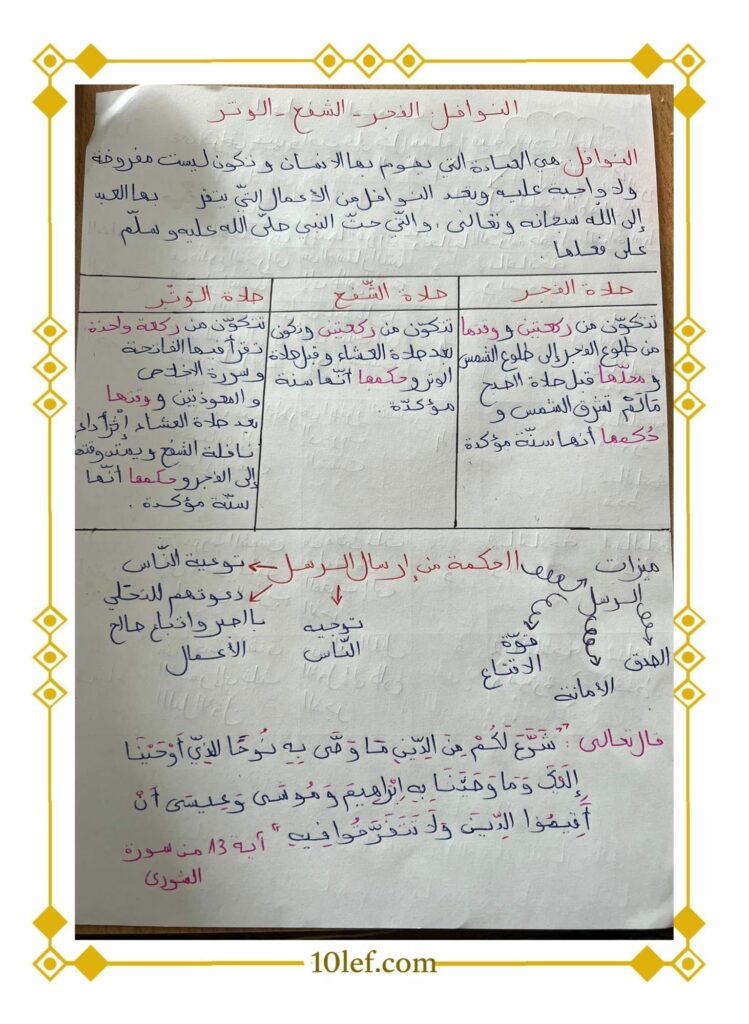 النوافل الفجر - الشفع - الوتر
النوافل هي العبادة التي يقوم بها الإنسان و تكون ليست مفروضة
ولا واجبة عليه وتعد النوافل من الأعمال التّي يتقر بها العبد
إلى اللّه سبحانه وتعالى، والتّي حثّ النبي صلّى الله عليه و سلّم
على فعلها.
صلاة الفجر
تتكوّن من ركعتين و وقتها
من طلوع الفجر إلى طلوع الشمس
و محلّها قبل صلاة الصبح
مَالَمْ تشرق الشمس و
حُكمها أنها سنّة مؤكدة
صلاة الشّفع
تتكوّن من ركعتين وتكون
بعد صلاة العشاء و قبل صلاة
الوتر و حكمها أنّها سنة
مؤكدّة.
صلاة الوَتْر
تتكوّن من ركعة واحدة
تقرأ فيها الفاتحة
و سورة الإخلاص
و المعوذتين و وقتها
بعد صلاة العشاء إثْر أداء
نافلة الشفع و يمتد وقتها
إلى الفجر و حكمها أنّها
سنّة مؤكدة.
ميزات
الرسل
الصدق
الأمانة
قوّة
الاقناع
الحكمة من إرسال الرسل
توجيه
النّاس
توعية النّاس
دعوتهم للتحلّي
بالصبر واتباع صالح
الأعمال
قال تعالى: "شَرَعَ لَكُمْ مِنَ الدِّينِ مَا وَصَّى بِهِ نُوحًا الذِّي أَوْحَيْنَا
إِلَيْكَ وَمَا وَصَّيْنَا بِهِ إِبْرَاهِيمَ وَمُوسَى وَعِيسَى أَنْ
أَقِيمُوا الدِّينَ وَلَا تَتَفَرَّقُوا فِيهِ" آية 13 من سورة
الشورى
10lef.com